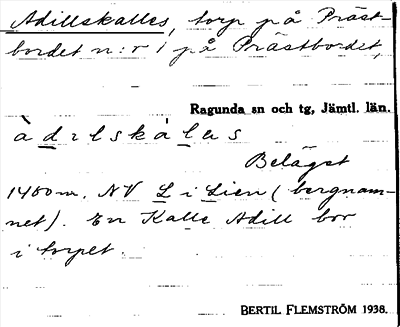 Adillskalles, torp på Präst-
bordet n:r 1 på Prästbordet,
Ragunda sn och tg, Jämtl. län.
àdɩlskáləs
Belägst
1400 m. NV L i Lien (bergnam-
net). En Kalle Adill bor
i torpet.
BERTIL FLEMSTRÖM 1938.